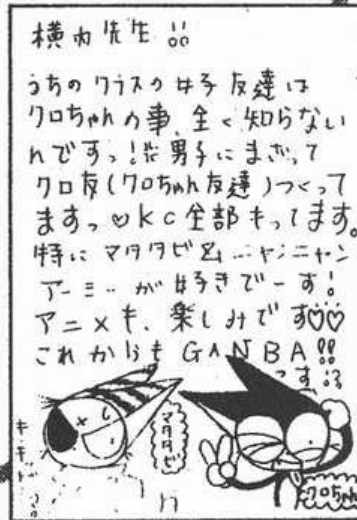 横内先生!!
うちのクラスの女子友達は
クロちゃんの事、全く知らない
んですっ!!男子にまざって
クロ友(クロちゃん友達)つくって
ますっ♡KC全部もってます。
特にマタタビ&ニャンニャン
アーミーが好きでーす!
アニメも、楽しみです♡♡
これからもGANBA!!
マタタビ
クロちゃん